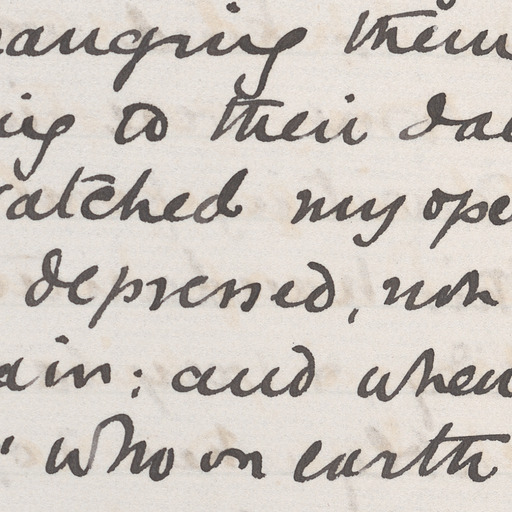 anging them
ing to their da
atched my ope
depressed, now
ain: and when
" who on earth